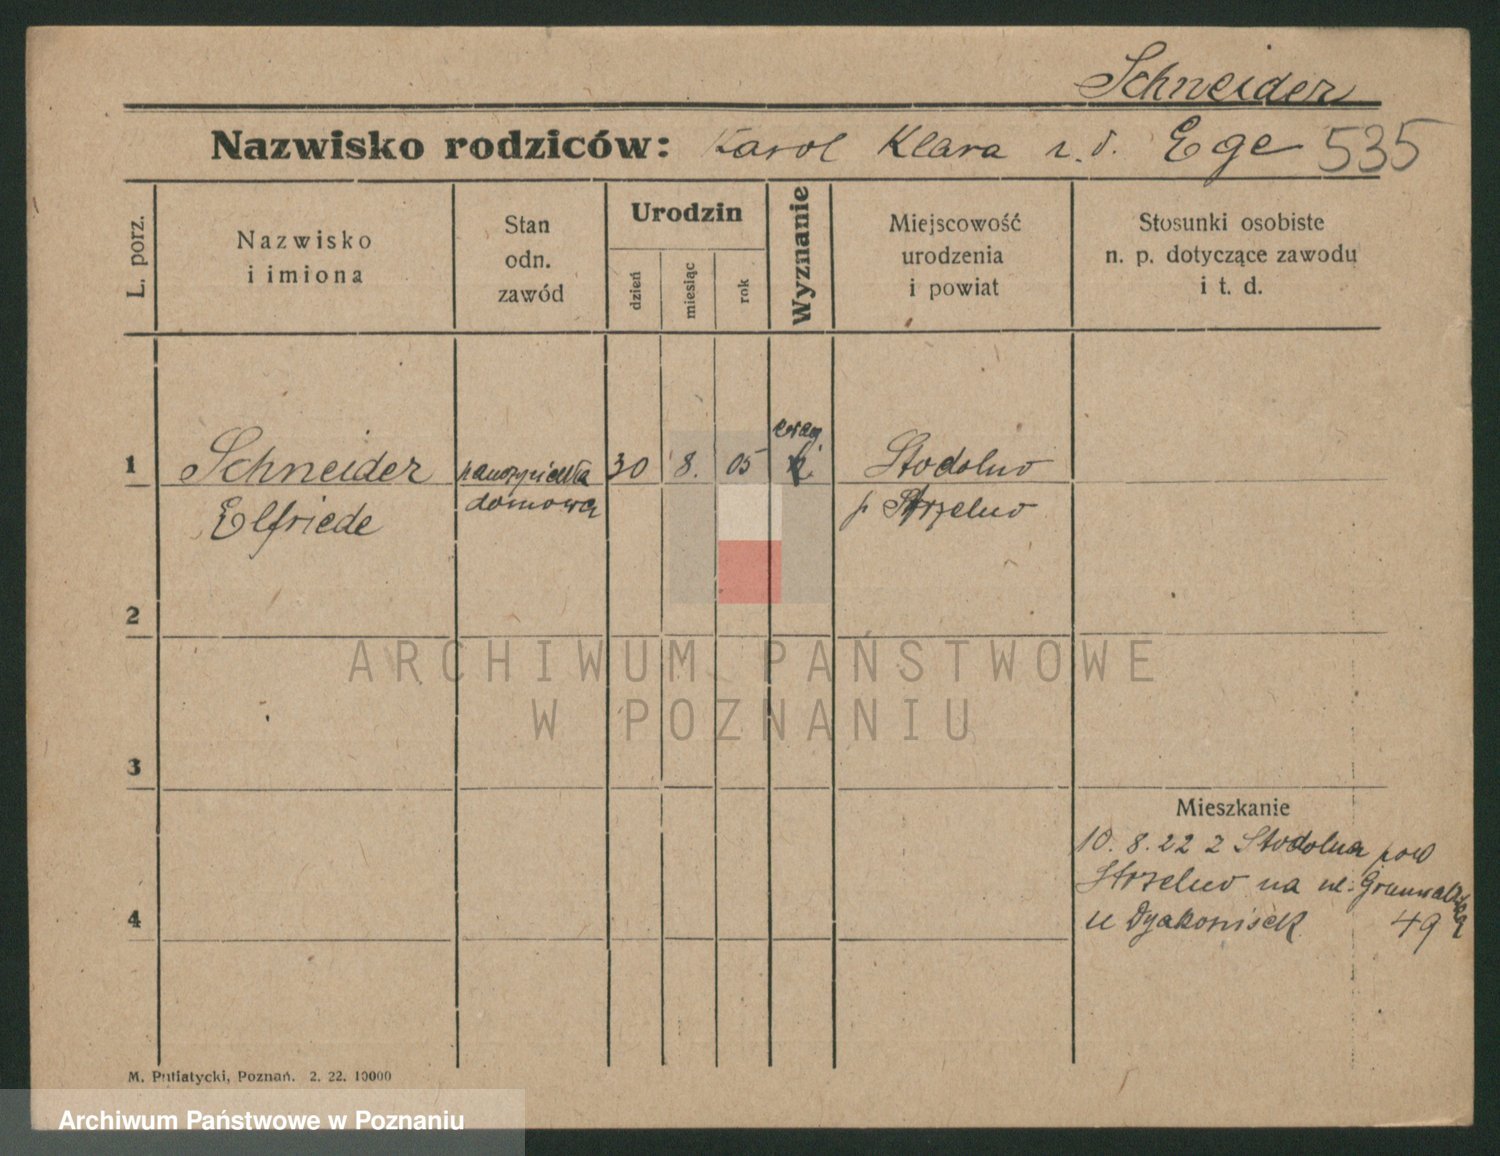 Schneider
Nazwisko rodziców: Karol Klara z. d. Ege 535
L. porz.
Nazwisko
i imiona
Stan
odn.
zawód
Urodzin
dzień
miesiąc
rok
Wyznanie
Miejscowość
urodzenia
i powiat
Stosunki osobiste
n. p. dotyczące zawodu
i t. d.
ewag.
1 Schneider 30 8. 05 Stodolno
Elfriede domowa p Strzelno
2
ARCHIWUM PAŃSTWOWE
W POZNANIU
3
Mieszkanie
10. 8. 22 z Stodolna pow
Strzelno na ul. Grunwaldzką
4 u Dyakonisek 49
M. Putiatycki, Poznań. 2. 22. 10000
Archiwum Państwowe w Poznaniu